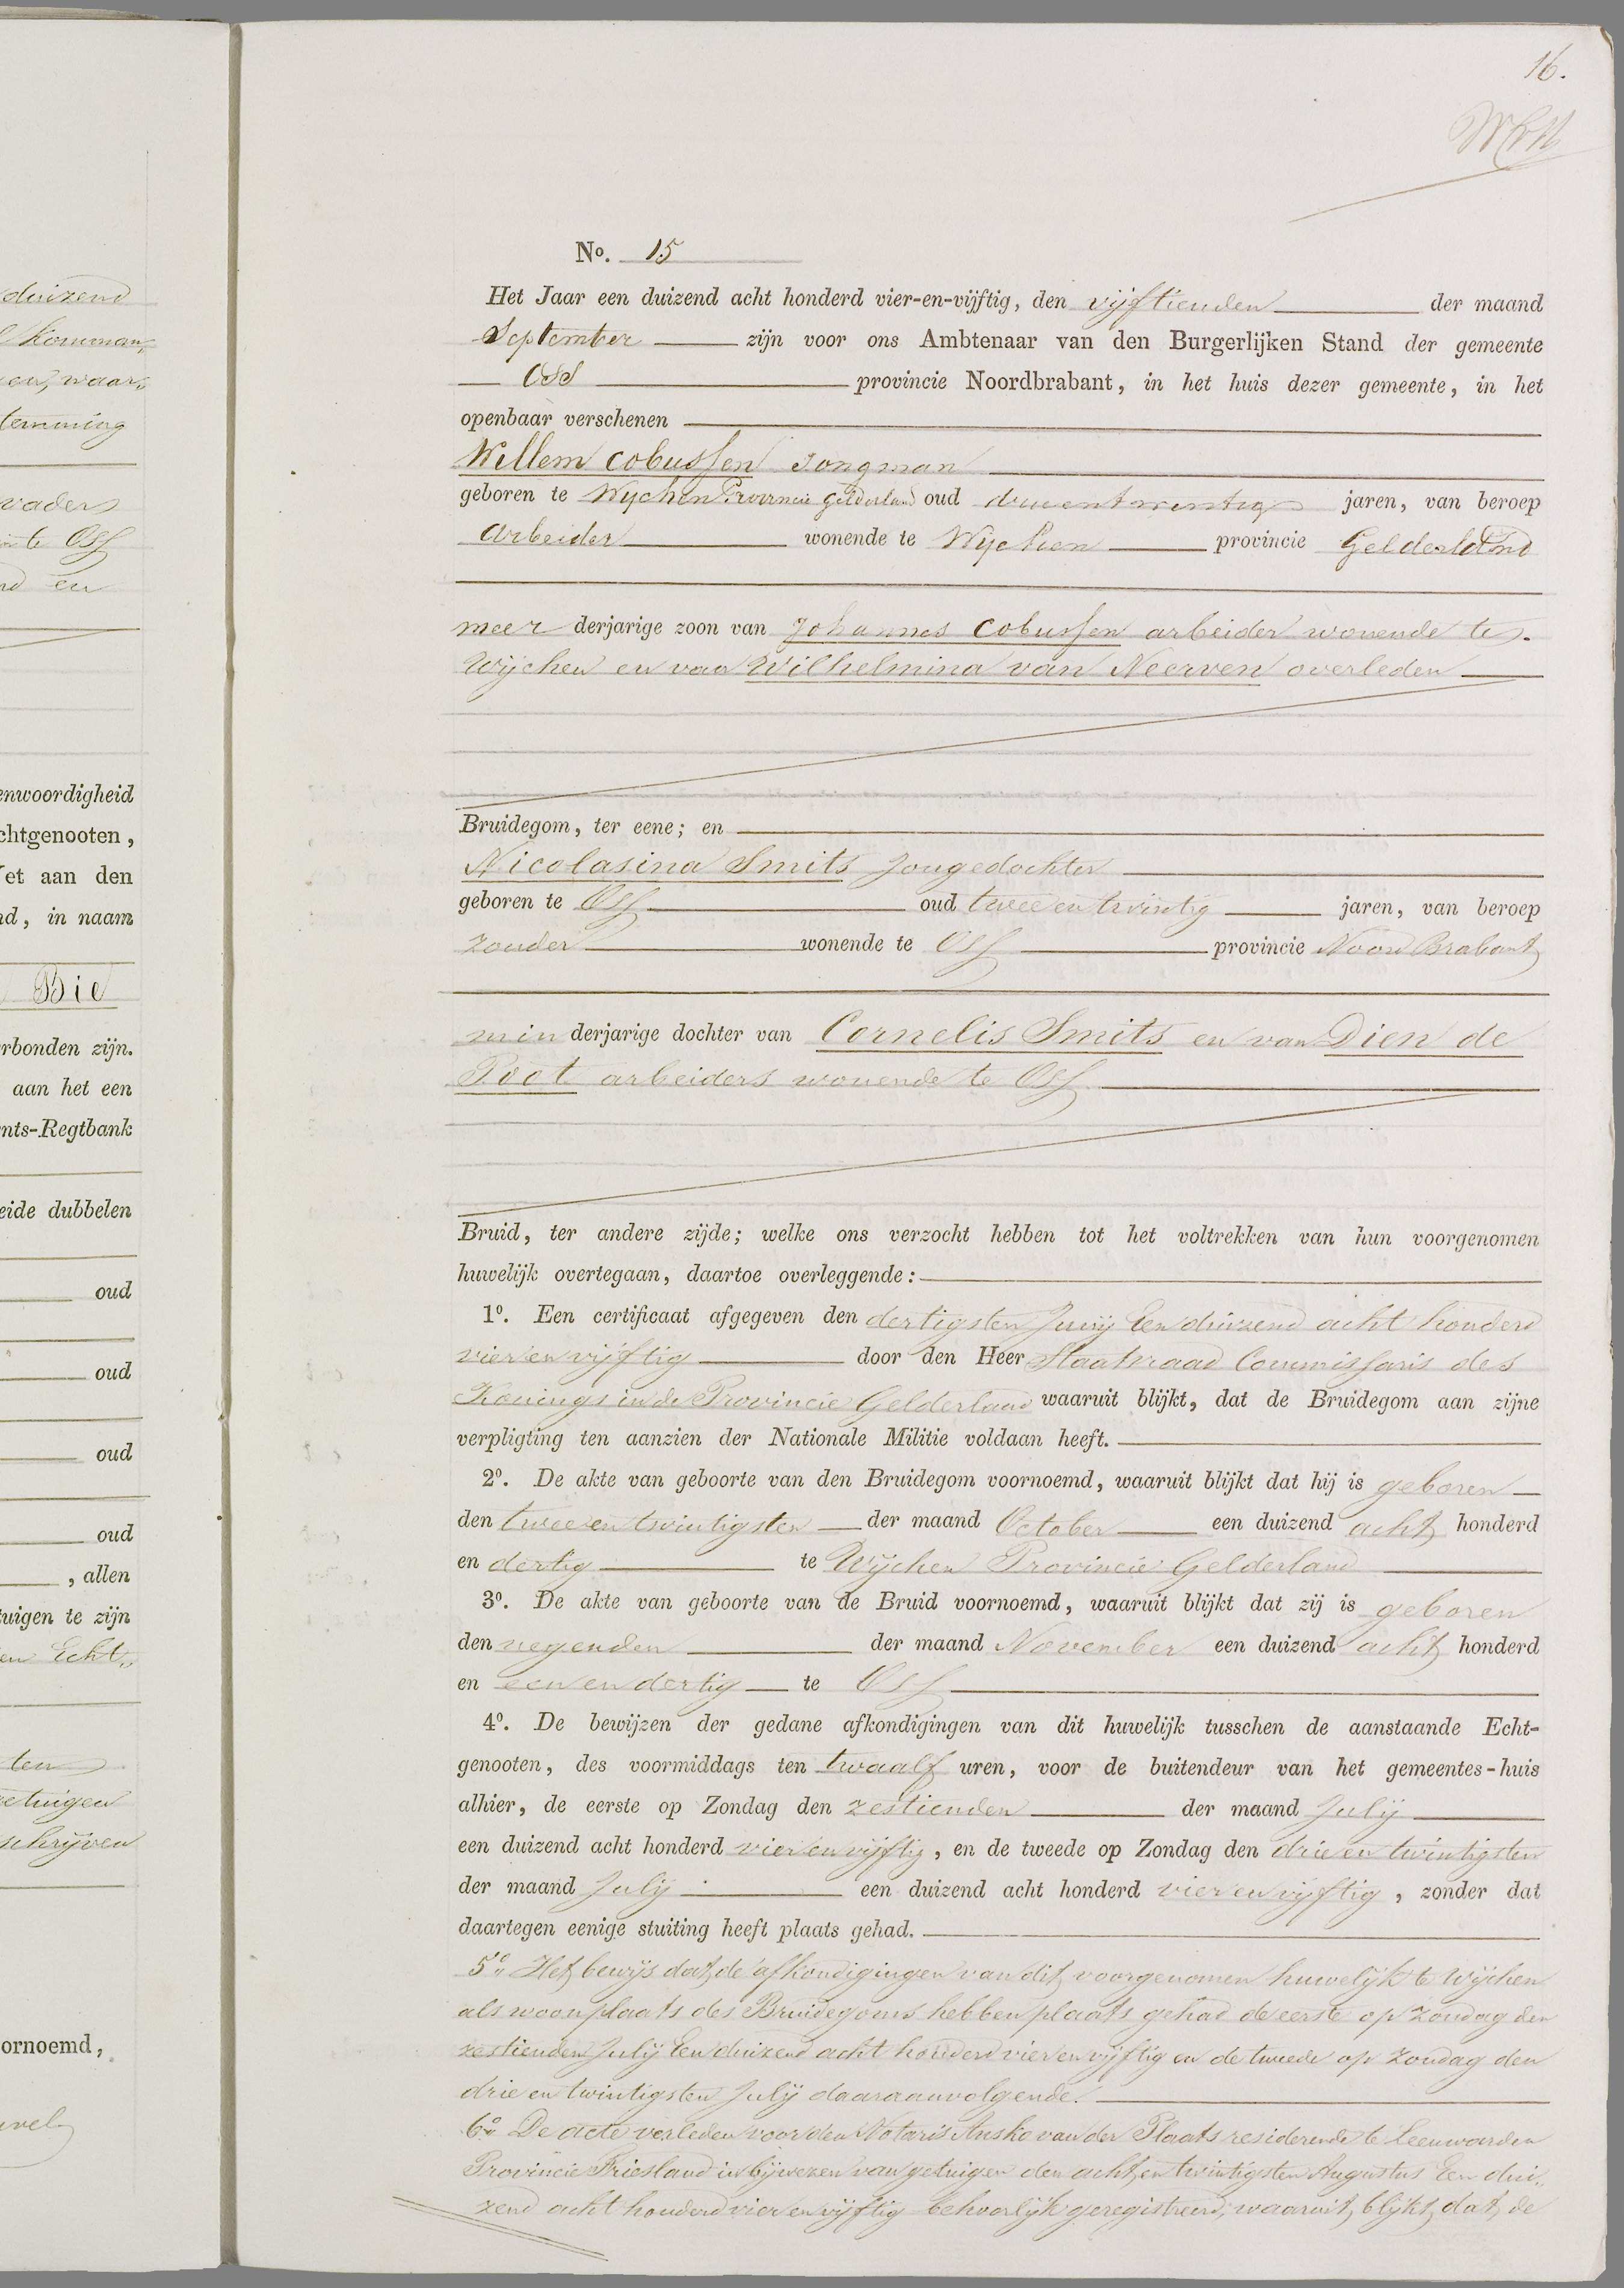 duizend
komman„
en, waar„
temming
vaders
te Oss
nd en
enwoordigheid
chtgenooten,
et aan den
nd, in naam
Bie
rbonden zijn.
aan het een
nts-Regtbank
eide dubbelen
oud
oud
oud
oud
, allen
tuigen te zijn
en Echt„
ten
getuigen
schrijven
ornoemd,
uvel
16.
No. 15
Het Jaar een duizend acht honderd vier-en-vijftig, den vijftienden der maand
September zijn voor ons Ambtenaar van den Burgerlijken Stand der gemeente
Oss provincie Noordbrabant, in het huis dezer gemeente, in het
openbaar verschenen
Willem Cobussen Jongman
geboren te Wychen Provincie Gelderland oud drieentwintig jaren, van beroep
Arbeider wonende te Wijchen provincie Gelderland
meer derjarige zoon van Johannes Cobussen arbeider wonende te
Wijchen en van Wilhelmina van Neerven overleden
Bruidegom, ter eene; en
Nicolasina Smits Jongedochter
geboren te Oss oud twee en twintig jaren, van beroep
zonder wonende te Oss provincie Noord Brabant
min derjarige dochter van Cornelis Smits en van Dien de
Poot arbeiders wonende te Oss
Bruid, ter andere zijde; welke ons verzocht hebben tot het voltrekken van hun voorgenomen
huwelijk overtegaan, daartoe overleggende:
1o. Een certificaat afgegeven den dertigsten Junij Een duizend acht honderd
vier en vijftig door den Heer Staatsraad Commissaris des
Konings in de Provincie Gelderland waaruit blijkt, dat de Bruidegom aan zijne
verpligting ten aanzien der Nationale Militie voldaan heeft.
2o. De akte van geboorte van den Bruidegom voornoemd, waaruit blijkt dat hij is geboren
den twee en twintigsten der maand October een duizend acht honderd
en dertig te Wijchen Provincie Gelderland
3o. De akte van geboorte van de Bruid voornoemd, waaruit blijkt dat zij is geboren
den negenden der maand November een duizend acht honderd
en een en dertig te Oss
4o. De bewijzen der gedane afkondigingen van dit huwelijk tusschen de aanstaande Echt-
genooten, des voormiddags ten twaalf uren, voor de buitendeur van het gemeentes-huis
alhier, de eerste op Zondag den zestienden der maand Julij
een duizend acht honderd vier en vijftig, en de tweede op Zondag den drie en twintigsten
der maand Julij een duizend acht honderd vier en vijftig, zonder dat
daartegen eenige stuiting heeft plaats gehad.
5o. Het bewijs dat de afkondigingen van dit voorgenomen huwelijk te Wijchen
als woonplaats des Bruidegoms hebben plaats gehad de eerste op Zondag den
zestienden Julij Een duizend acht honderd vier en vijftig en de tweede op Zondag den
drie en twintigsten Julij daaraanvolgende.
6o. De acte verleden voor den Notaris Ansko van der Plaats residerende te Leeuwarden
Provincie Friesland in bijwezen van getuigen den acht en twintigsten Augustus Een dui„
zend acht honderd vier en vijftig behoorlijk geregistreerd, waaruit blijkt dat de